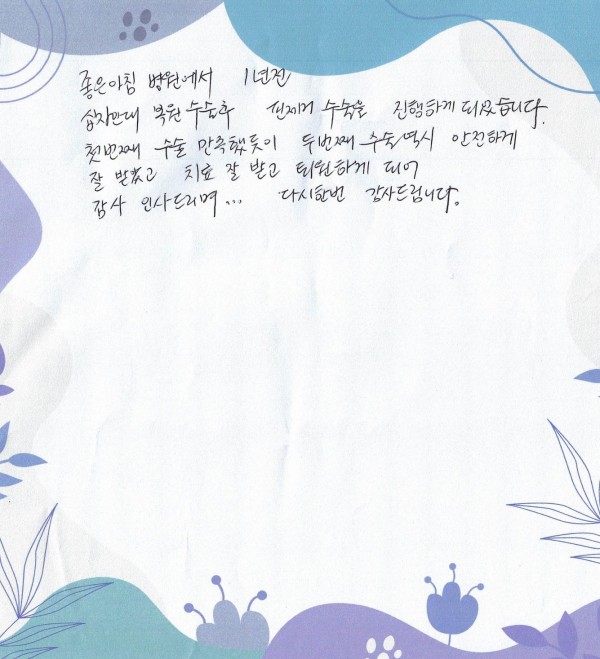 좋은아침 병원에서 1년전
십자인대 복원 수술후 핀제거 수술을 진행하게 되었습니다.
첫번째 수술 만족했듯이 두번째 수술역시 안전하게
잘 받았고 치료 잘 받고 퇴원하게 되어
감사 인사드리며... 다시한번 감사드립니다.